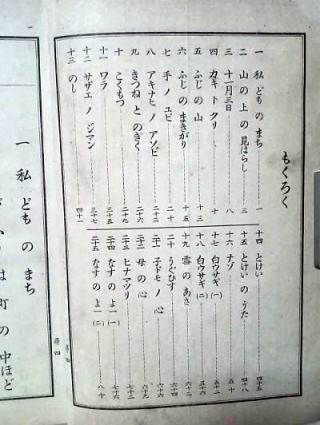 もくろく
一 私 ども の まち 一
二 山 の 上 の 見はらし 三
三 十一月三日 八
四 カキ トクリ 十
五 ふじ の 山 十三
六 ふじ の まきがり 十五
七 手 ノ ユビ
八 アキナヒ ノ アソビ 二十
九 きつね と のぎく 二十六
十 こくもつ 二十九
十一 ワラ
十二 サザエ ノ ジマン 三十七
十三 のし 四十一
十四 とけい 四十五
十五 とけい の うた 四十八
十六 ナゾ 五十
十七 白ウサギ (一) 五十二
十八 白ウサギ (二) 五十六
十九 雲 の あさ 六十二
二十 うぐひす 六十四
二十一 子ドモ ノ 心 六十六
二十二 母 の 心 六十九
二十三 ヒナマツリ
二十四 なす の よ一 (一) 七十六
二十五 なす の よ一 (二) 八十
巻四
一 私 ども の まち
は 町 の 中ほど